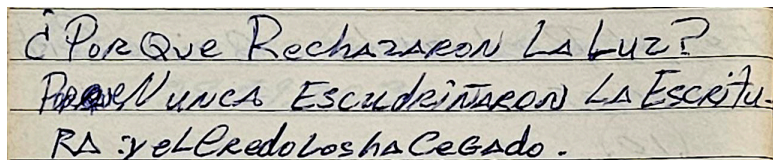 ¿PORQue RechazaRON LA Luz?
PORQue NUNCA ESCUDRIÑARON LA EscRitu-
RA : y eL CRedo Los ha CegADo.